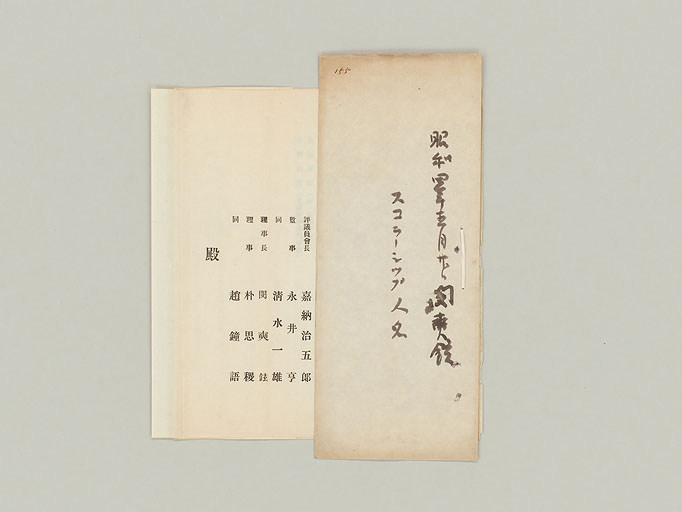 155
昭和四年五月廿七 閔奭鉉
スコラーシップ人名
評議員會長 嘉納治五郎
監事 永井亨
同 清水一雄
理事長 閔奭鉉
理事 朴思稷
同 趙鐘語
殿